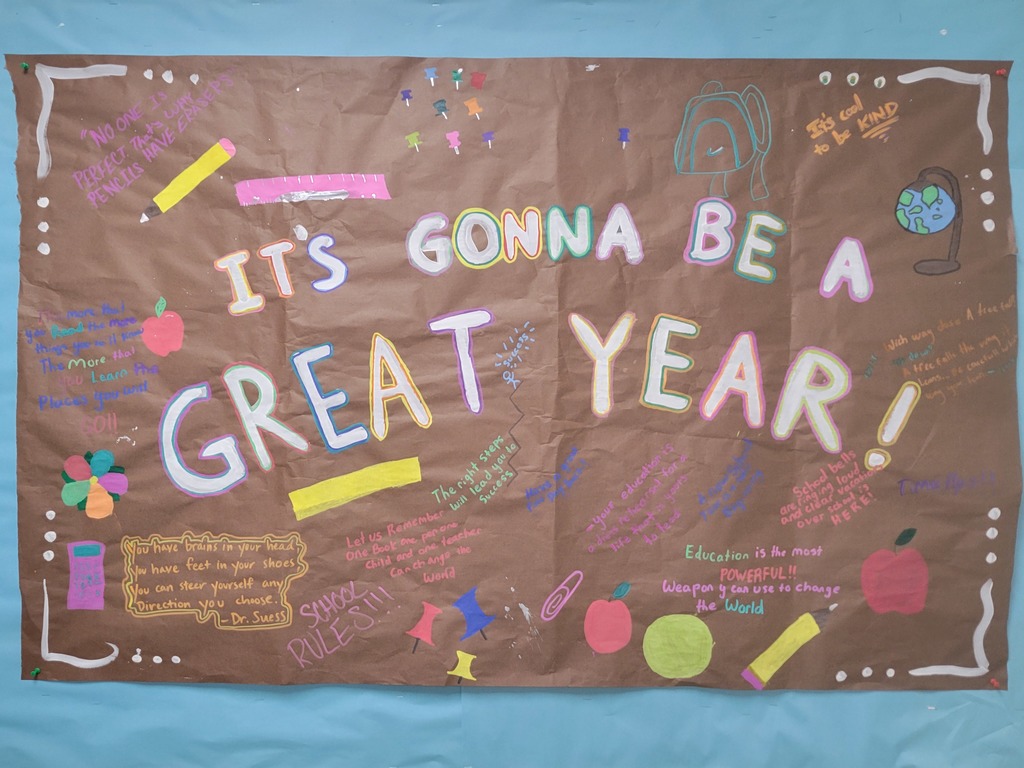 "NO ONE IS
PERFECT That's WHY
PENCILS HAVE ERASERS
It's cool
to be KIND
IT'S GONNA BE A
GREAT YEAR!
more that
you Read the more
things you
The More that
you Learn the
Places you
GO!!!
success
The right steps
will lead you to
success
A tree
School bells
are ringing loud
and clear vacations
over school is
HERE!
your education is
a dress rehearsal for a
life that is yours
to lead
You have brains in your head
You have feet in your shoes
you can steer yourself any
Direction you choose.
- Dr. Suess
Let us Remember
One Book one pen one
Child and one teacher
Can change the
World
SCHOOL
RULES!!!
Education is the most
POWERFUL!!
Weapon y can use to change
the World